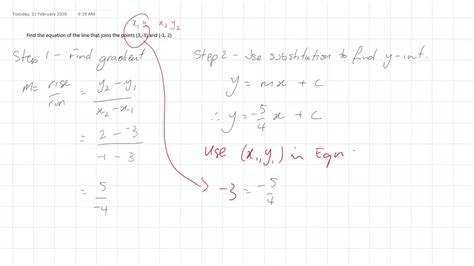 Tuesday, 11 February 2020 9:19 AM
x₁ y₁ x₂ y₂
Find the equation of the line that joins the points (3,-3) and (-1, 2)
Step 1 - Find gradient
m = rise/run = y₂ - y₁ / x₂ - x₁
= 2 - -3 / -1 - 3
= 5/-4
Step 2 - Use substitution to find y-int.
y = mx + c
∴ y = -5/4 x + c
Use (x₁, y₁) in Eqn.
-3 = -5/4